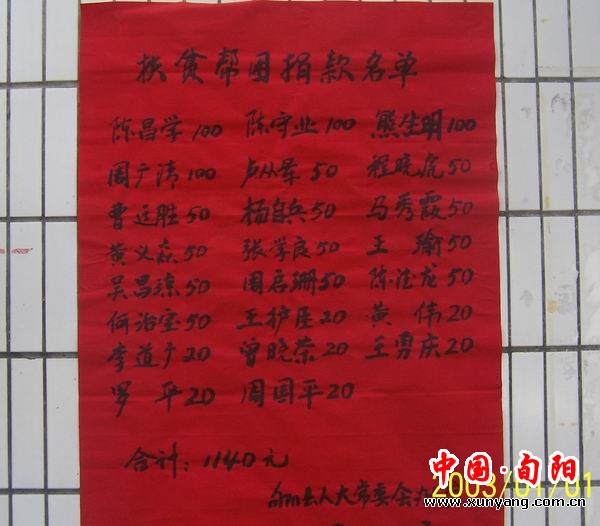 扶贫帮困捐款名单
陈昌学100 陈守业100 熊生明100
周广清100 卢从军50 程晓虎50
曹廷胜50 杨自兵50 马秀霞50
黄义森50 张学良50 王瑜50
吴昌琼50 周启珊50 陈德龙50
何治宝50 王护民20 黄伟20
李道广20 曾晓荣20 王勇庆20
罗平20 周国平20
合计:1140元
旬阳县人大常委会
2003/01/01
中国·旬阳
www.xunyang.com.cn